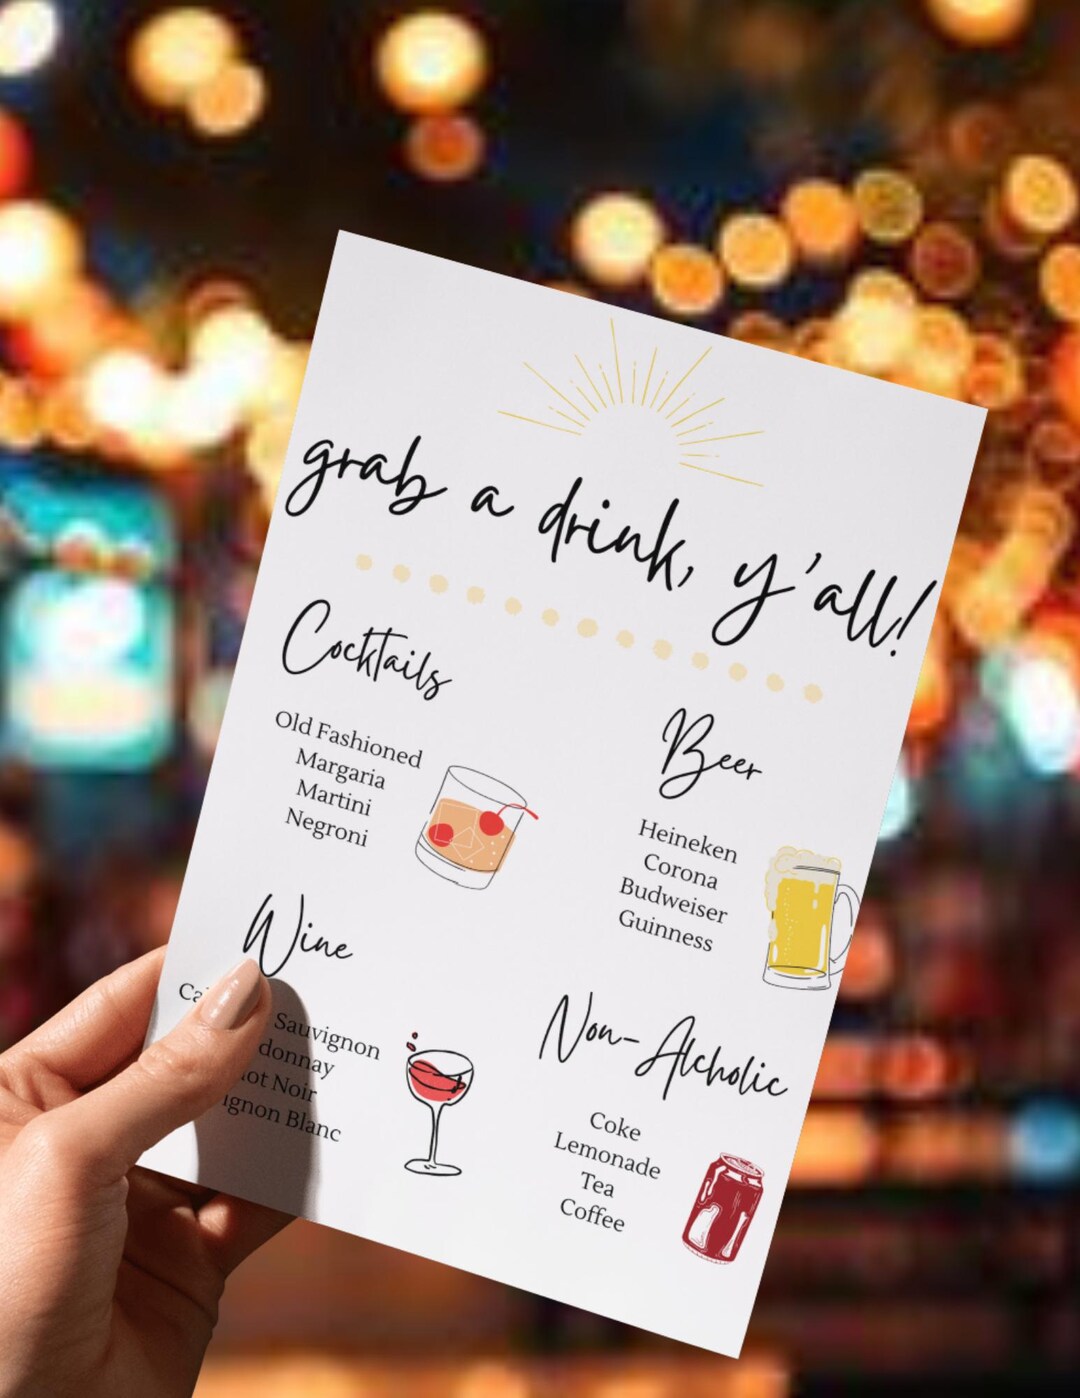 grab a drink, y'all!
Cocktails
Old Fashioned
Margaria
Martini
Negroni
Beer
Heineken
Corona
Budweiser
Guinness
Wine
Sauvignon
donnay
Noir
ignon Blanc
Non-Alcholic
Coke
Lemonade
Tea
Coffee